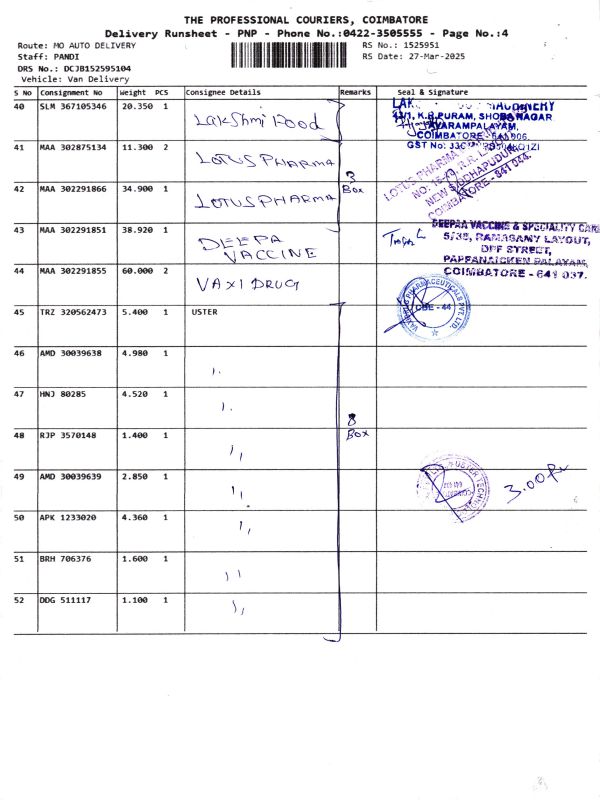 THE PROFESSIONAL COURIERS, COIMBATORE
Delivery Runsheet - PNP - Phone No.:0422-3505555 - Page No.:4
Route: MO AUTO DELIVERY
RS No.: 1525951
Staff: PANDI
RS Date: 27-Mar-2025
DRS No.: DCJB152595104
Vehicle: Van Delivery
S No Consignment No Weight PCS Consignee Details Remarks Seal & Signature
40 SLM 367105346 20.350 1 Lakshmi Food
K.R.PURAM, SHOBA NAGAR
COIMBATORE
GST No:
41 MAA 302875134 11.300 2 LOTUS PHARMA
LOTUS PHARMA
NEW SIDDHAPUDUR
COIMBATORE - 641 044.
3
Box
42 MAA 302291866 34.900 1 LOTUS PHARMA
43 MAA 302291851 38.920 1 DEEPA
VACCINE
DEEPAA VACCINE & SPECIALITY CARE
5/35, RAMASAMY LAYOUT,
OFF STREET,
PAPPANAICKEN PALAYAM,
COIMBATORE - 641 037.
44 MAA 302291855 60.000 2 VAXI DRUG
PHARMACEUTICALS PVT. LTD.
CBE - 44
45 TRZ 320562473 5.400 1 USTER
46 AMD 30039638 4.980 1
47 HNJ 80285 4.520 1
8
Box
48 RJP 3570148 1.400 1 ,,
49 AMD 30039639 2.850 1 ,,
USTER
3.00
50 APK 1233020 4.360 1 ,,
51 BRH 706376 1.600 1 ,,
52 DDG 511117 1.100 1 ,,